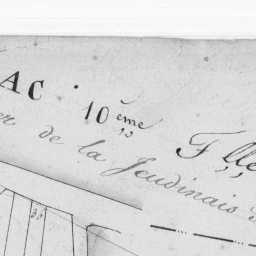 AC. 10ème Flle
er de la Jeudinais
35